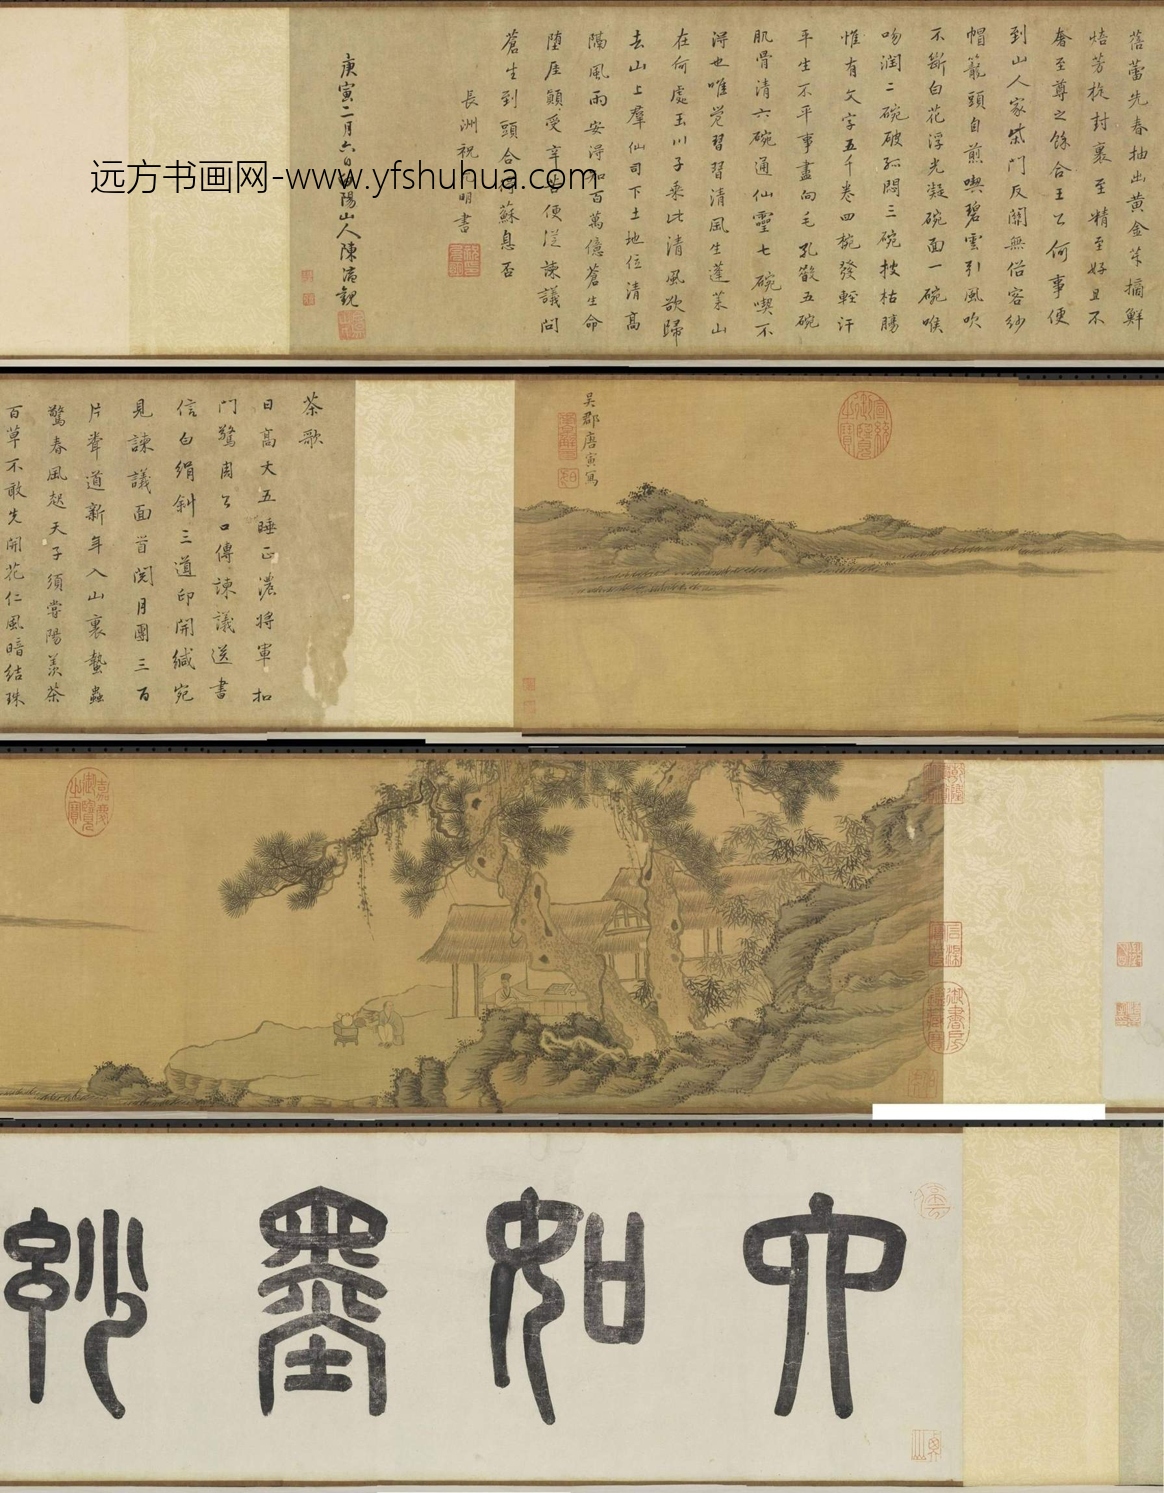 六如墨妙
吳郡唐寅寫
茶歌
日高丈五睡正濃將軍扣
門驚周公口傳諫議送書
信白絹斜三道印開緘宛
見諫議面首閱月團三百
片聞道新年入山裏蟄蟲
驚春風起天子須嘗陽羨茶
百草不敢先開花仁風暗結珠
蓓蕾先春抽出黃金芽摘鮮
焙芳旋封裹至精至好且不
奢至尊之餘合王公何事便
到山人家柴門反關無俗客紗
帽籠頭自煎喫碧雲引風吹
不斷白花浮光凝碗面一碗喉
吻潤二碗破孤悶三碗搜枯腸
惟有文字五千卷四碗發輕汗
平生不平事盡向毛孔散五碗
肌骨清六碗通仙靈七碗喫不
得也唯覺習習清風生蓬萊山
在何處玉川子乘此清風欲歸
去山上羣仙司下土地位清高
隔風雨安得知百萬億蒼生命
墮崖顛受辛苦便從諫議問
蒼生到頭合得蘇息否
長洲祝允明書
庚寅二月六日白陽山人陳淳觀
嘉慶御覽之寶
宣統御覽之寶
远方书画网-www.yfshuhua.com